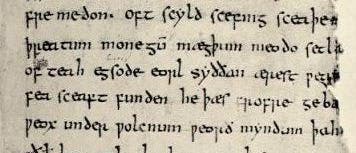 fremedon. oft scyld scefing sceaþe
þreatum monegū mægþum meodo setla
of teah egsode eorl syððan ærest
fea sceaft funden he þæs frofre geba
weox under wolcnum weorð myndum þah